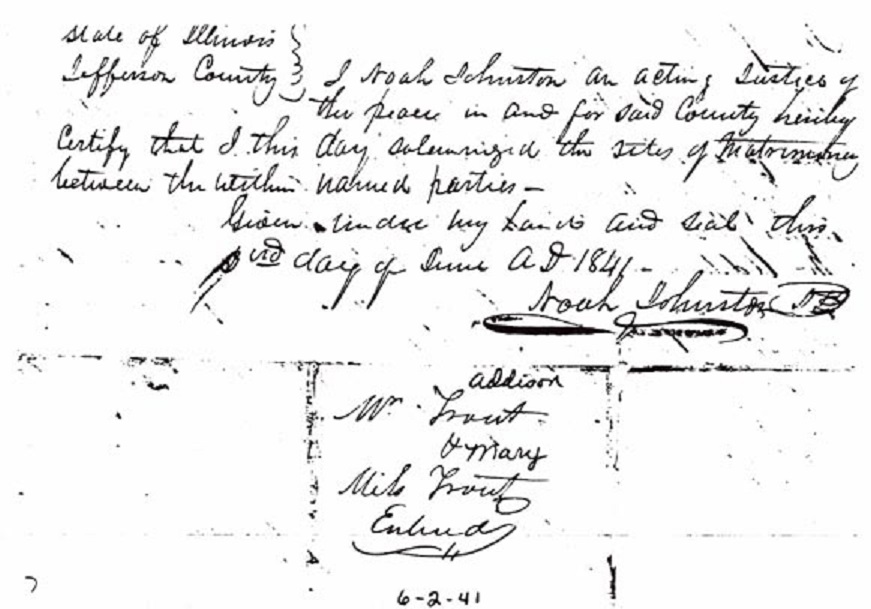 State of Illinois
Jefferson County } I Noah Johnston an acting Justice of
the peace in and for said County hereby
Certify that I this day solemnized the rites of Matrimony
between the within named parties –
Given under my hand and seal this
3rd day of June A D 1841 –
Noah Johnston
addison
Mr Trout
& Mary
Trout
6-2-41